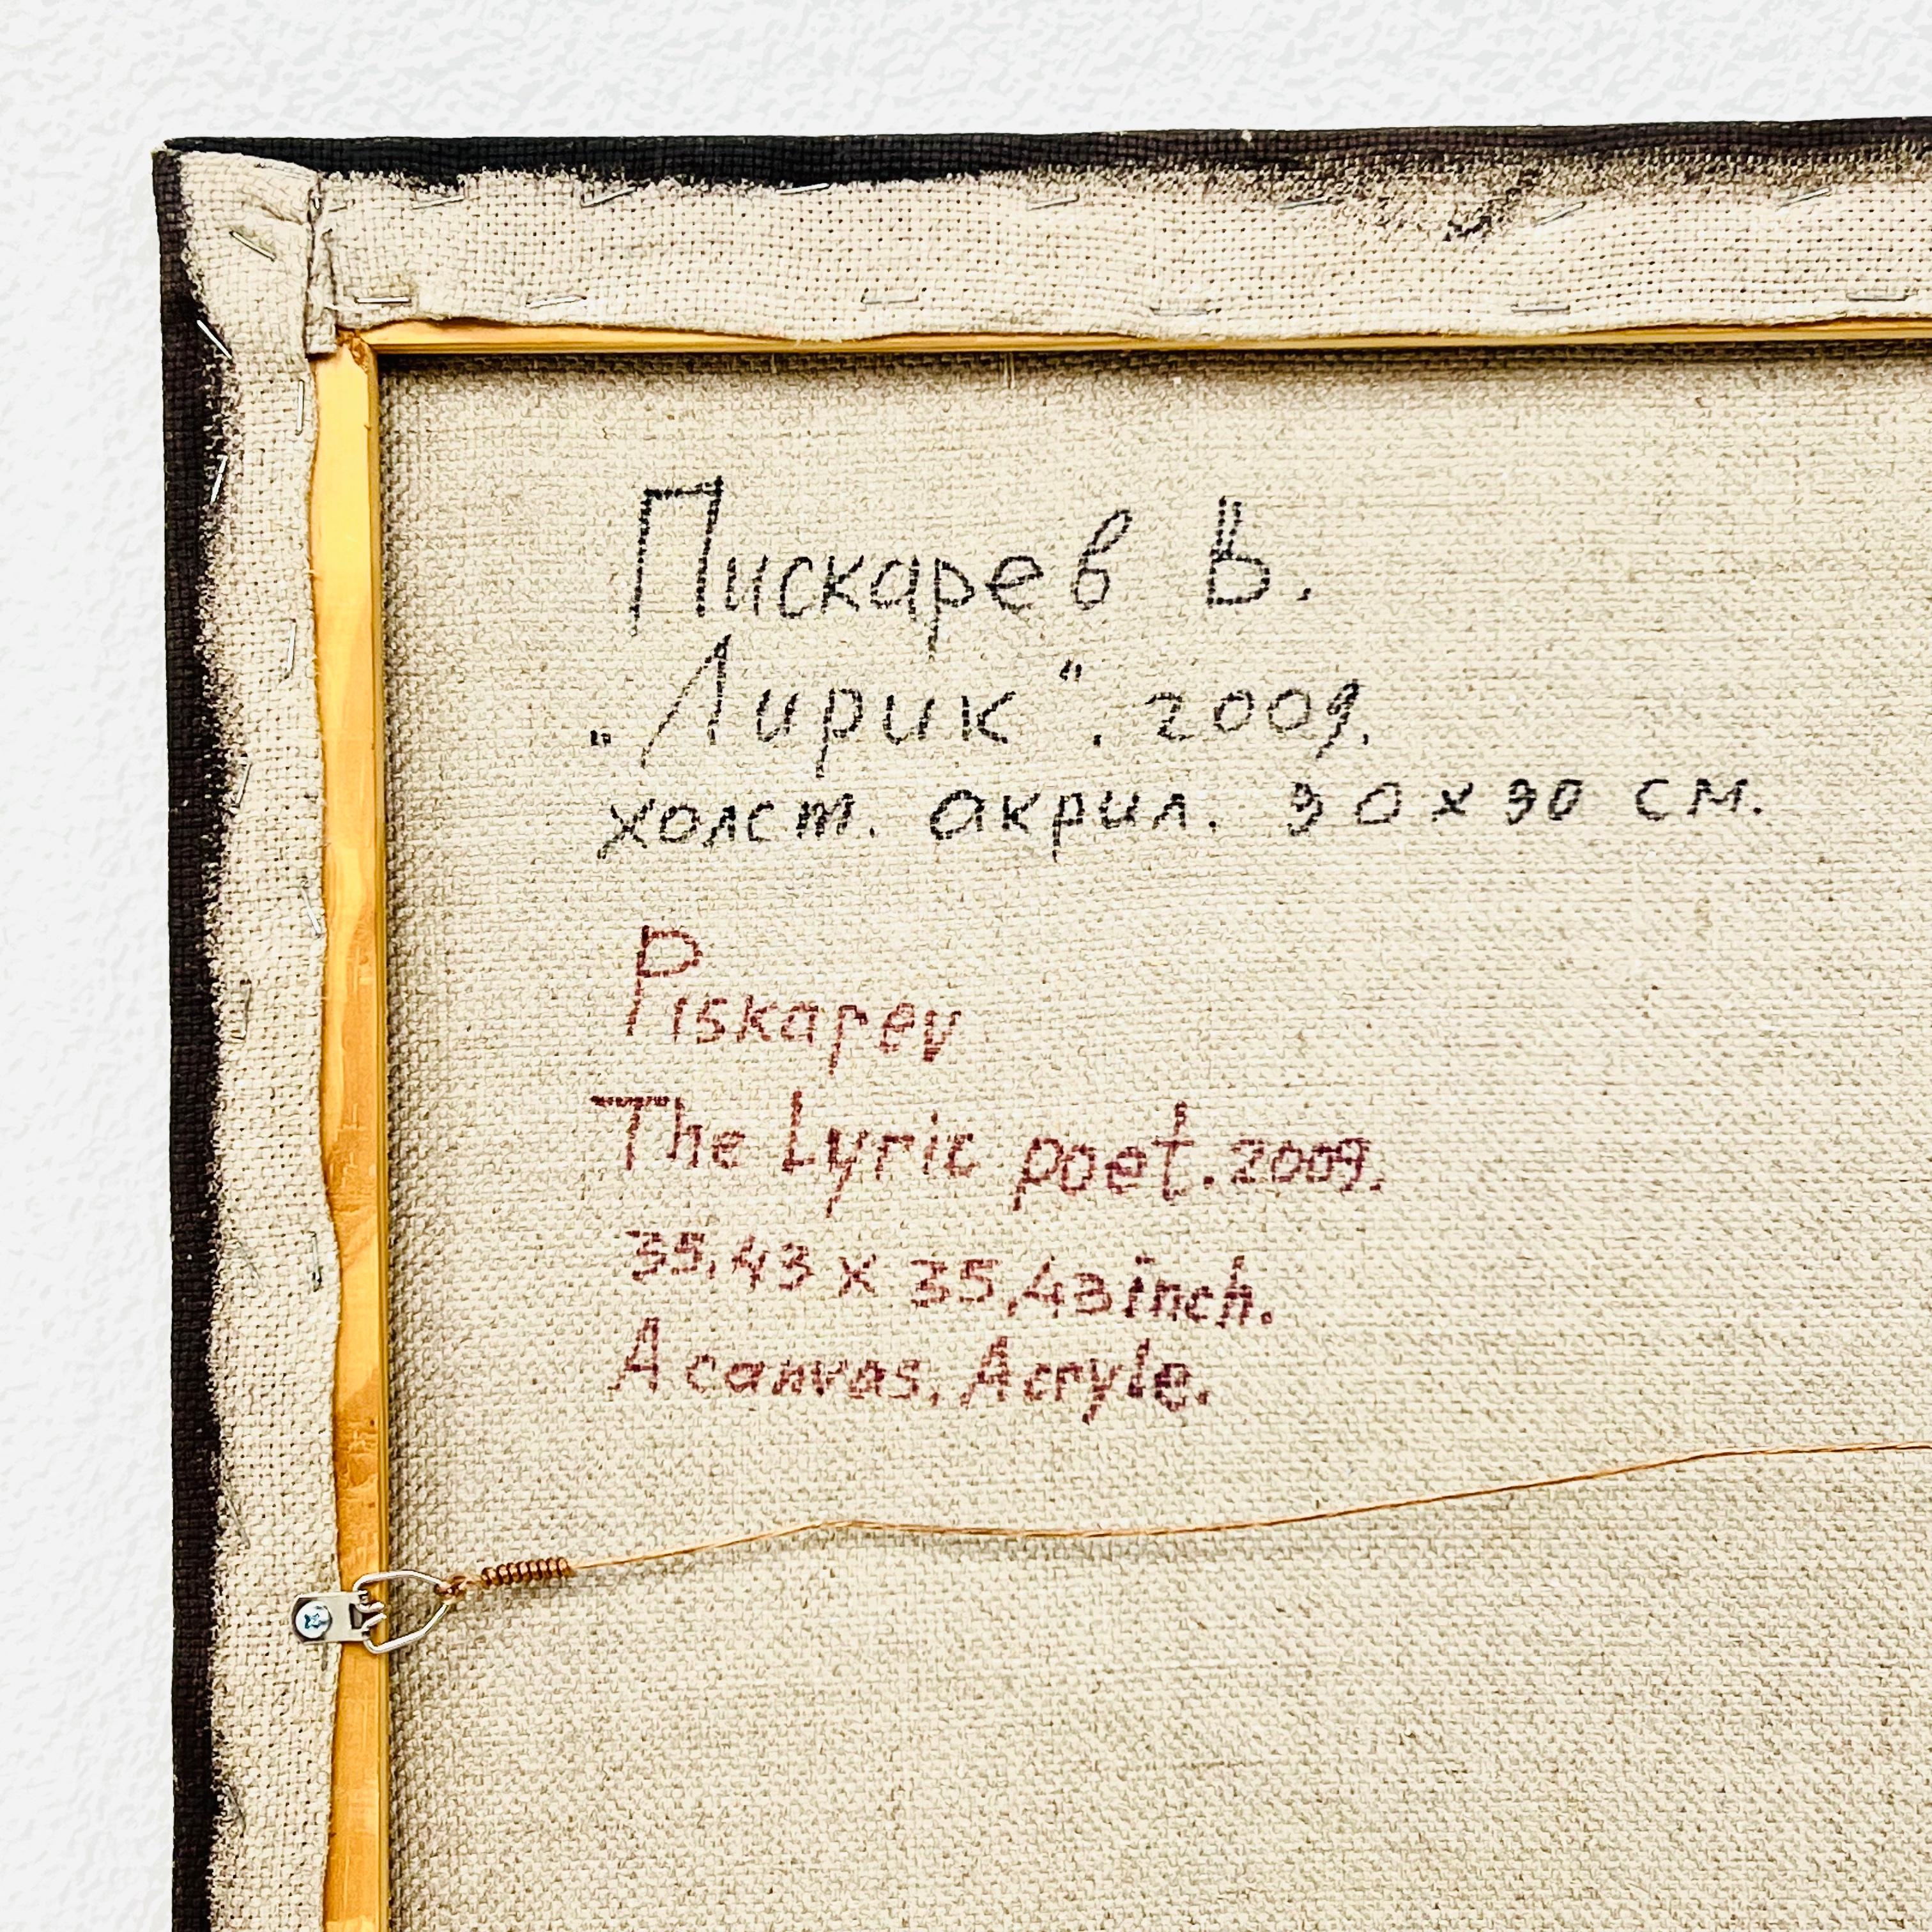 Пискарев В.
„Лирик“. 2009.
холст. акрил. 90 х 90 см.
Piskarev
The Lyric poet. 2009.
35,43 x 35,43 inch.
A canvas. Acryle.